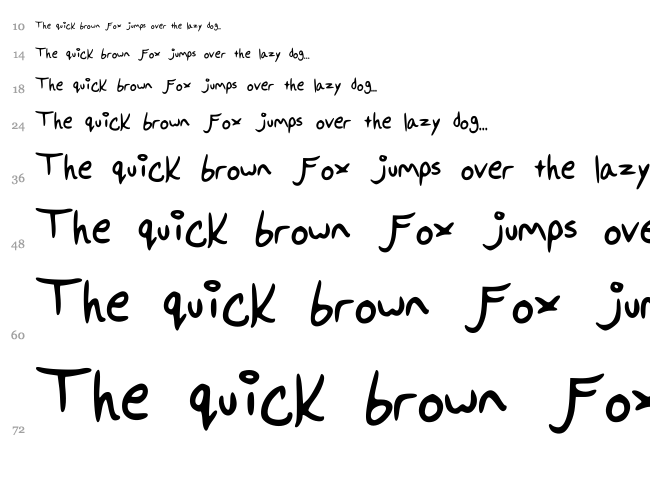 10 The quick brown fox jumps over the lazy dog...
14 The quick brown fox jumps over the lazy dog...
18 The quick brown fox jumps over the lazy dog...
24 The quick brown fox jumps over the lazy dog...
36 The quick brown fox jumps over the lazy
48 The quick brown fox jumps ove
60 The quick brown fox jur
72 The quick brown fox